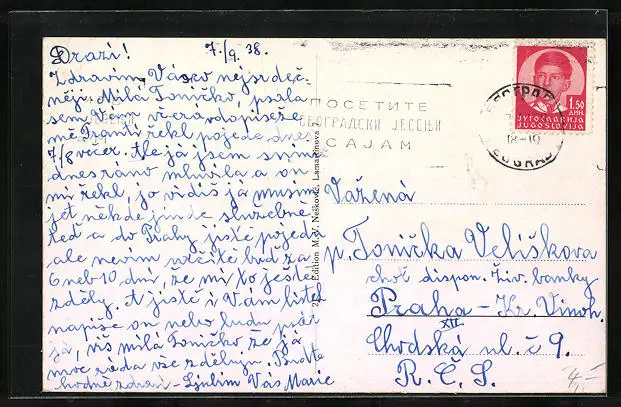 Drazí! 7./9. 38.
Zdravím Vás co nejsrdeč-
něji. Milá Toničko, psala
sem Vám včera dopise že
mě Frantí řekl pojede dnes
7/8 večer. Ale já jsem s ním
dnes ráno mluvila a on
mi řekl, jo vidíš já musím
jet někde jinde služebně
teď a do Prahy jistě pojedu
ale nevím určitě buď za
6 neb 10 dní, že mi to ještě
zdělý. A jistě i Vám lístek
napíše on nebo budu psát
já, víš milá Toničko že já
moc ráda vše zděluji. Buďte
hodně zdraví - Ljubim Vás Marie
ПОСЕТИТЕ
БЕОГРАДСКИ ЈЕСЕЊИ
САЈАМ
Edition M. V. Nešković, Lamartinova
1.50
ДИН.
ЈУГОСЛАВИЈА
JUGOSLAVIJA
БЕОГРАД
18-19
BEOGRAD
Vážená
p. Tonička Veliškova
choť dispon. živ. banky
Praha - Kr. Vinoh.
XII
Chodská ul. č 9.
R. Č. S.
4,-